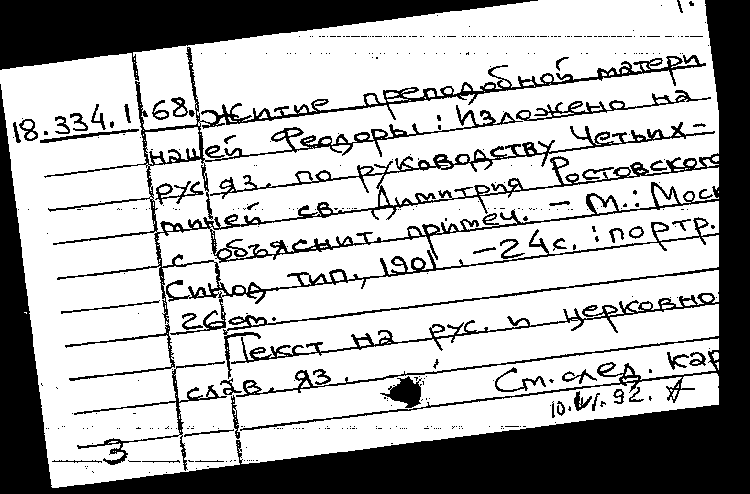 1.
18.334.1.68. Житие преподобной матери
нашей Феодоры: Изложено на
рус. яз. по руководству Четьих-
миней св. Димитрия Ростовского
с объяснит. примеч. - М.: Моск
Синод. тип., 1901. - 24 с. : портр.
26 cm.
Текст на рус. и церковно
слав. яз.
См. след. кар
10.VI.92.
3